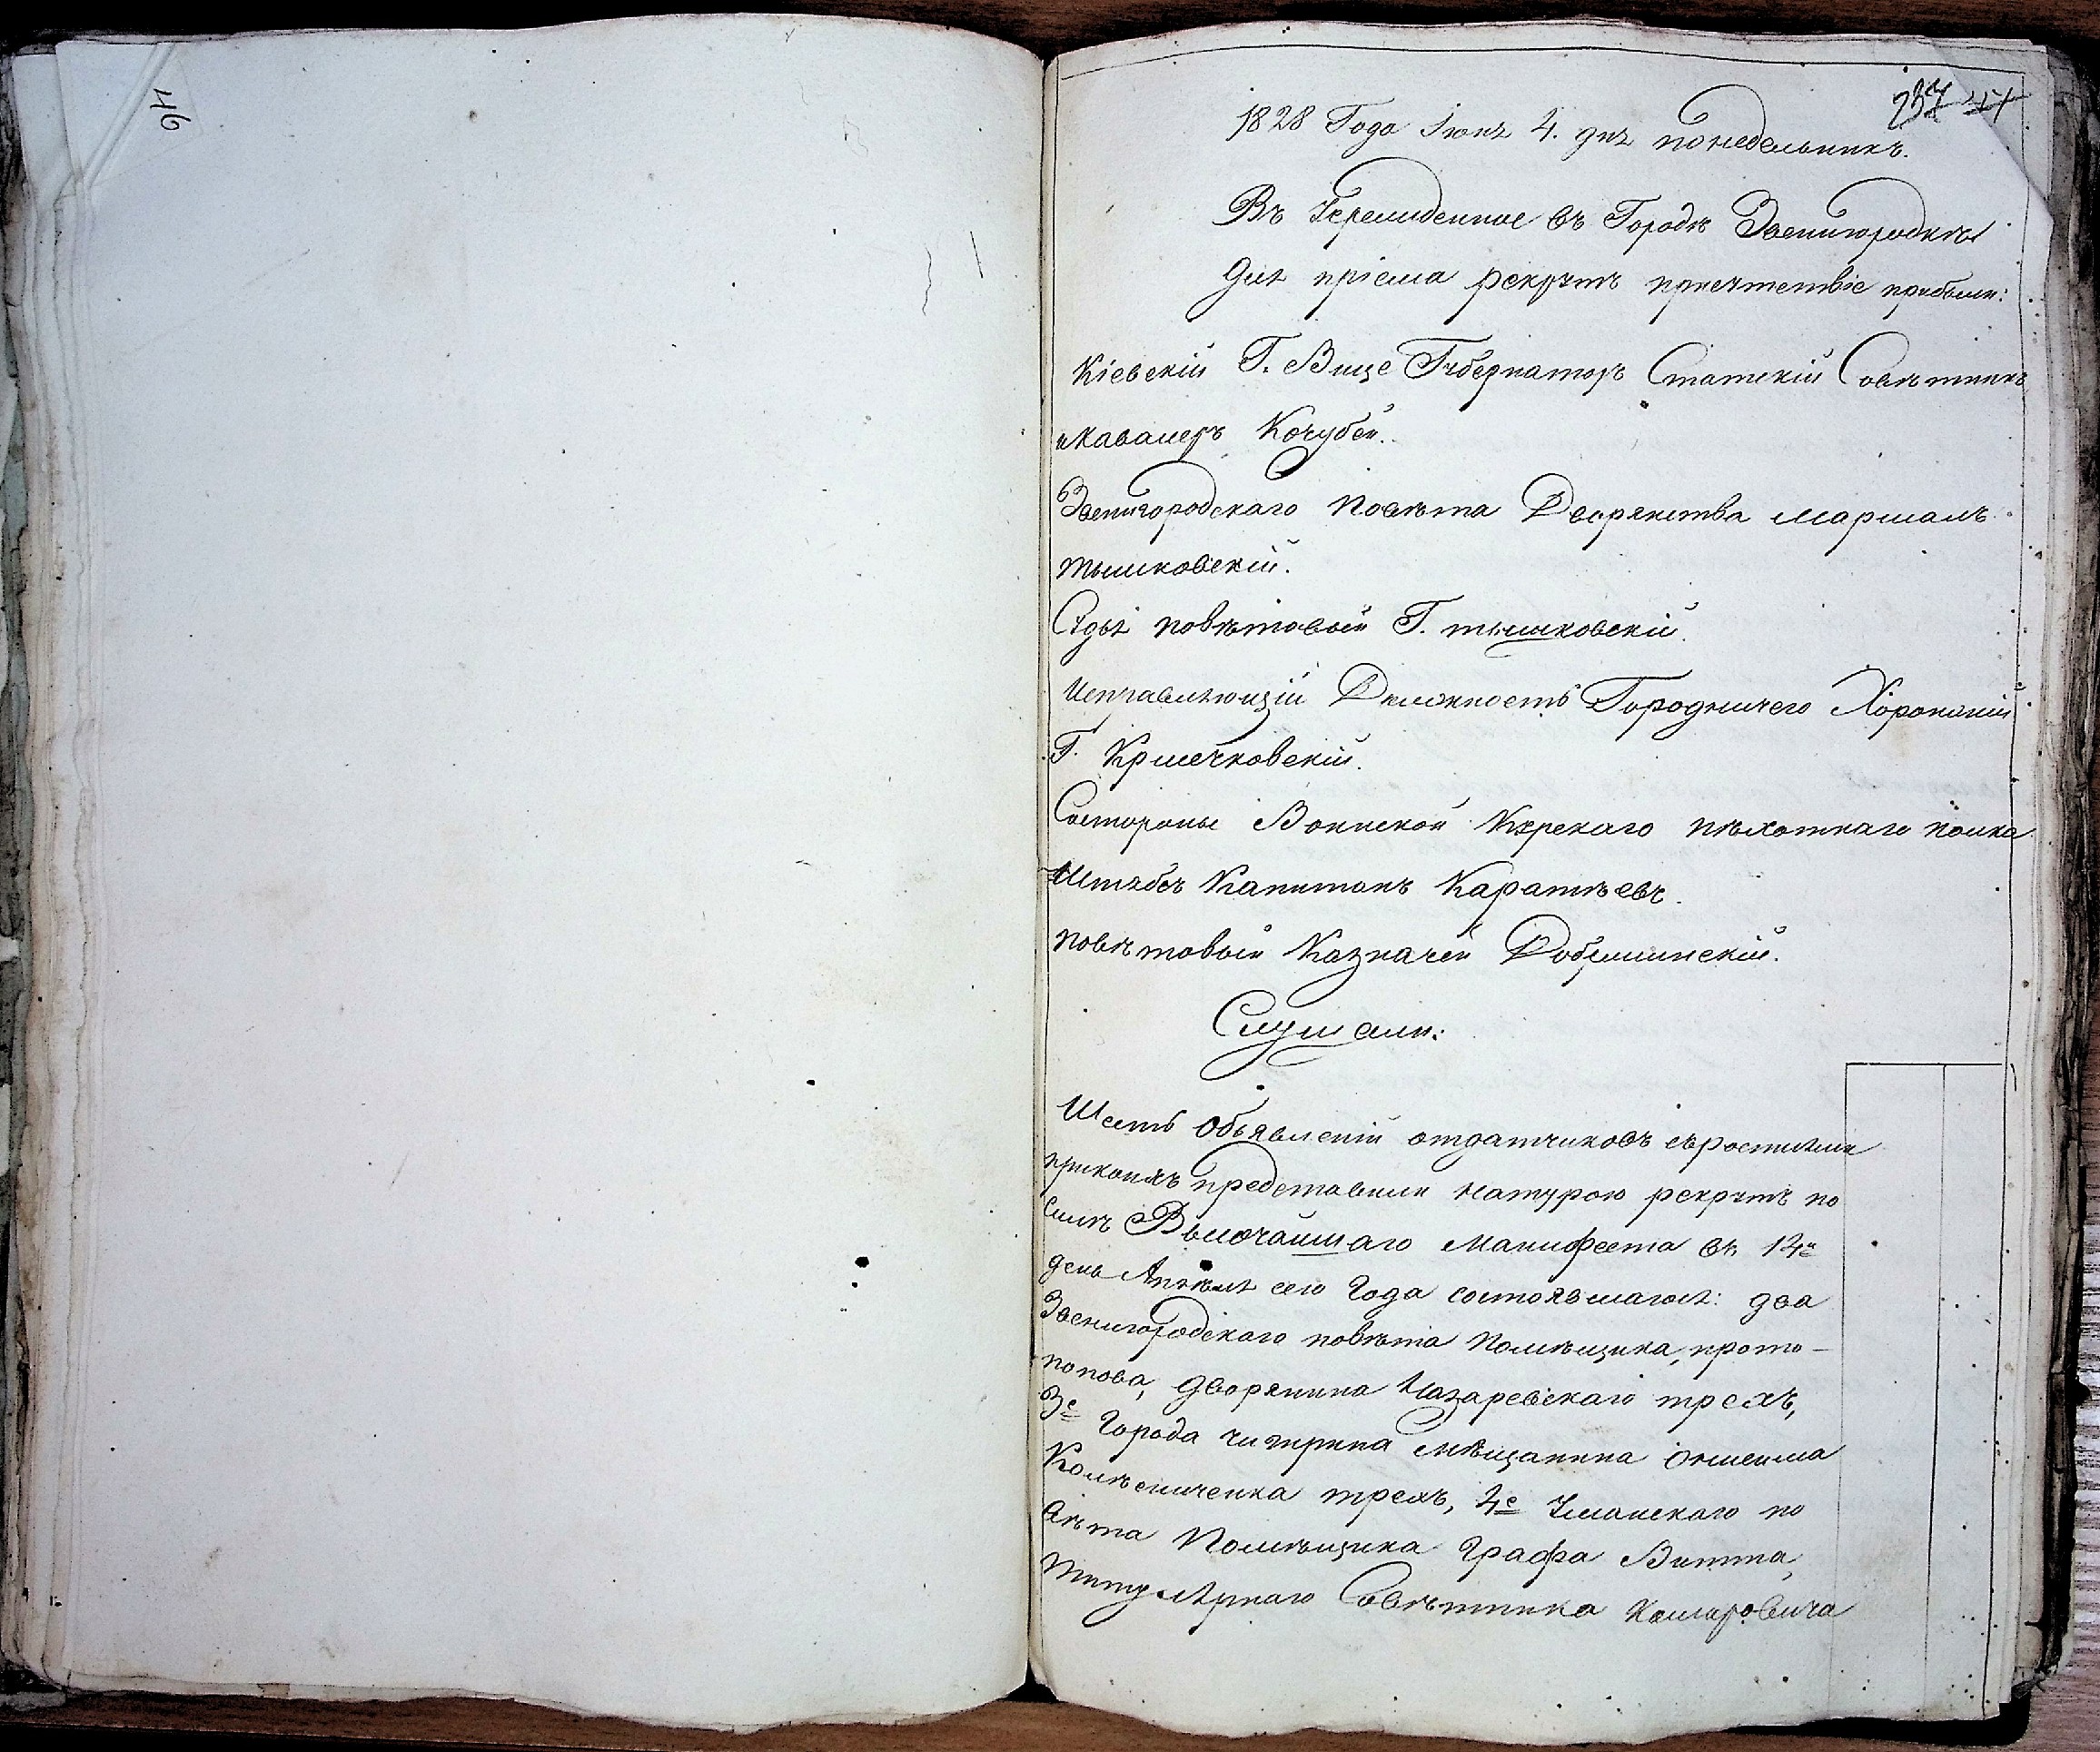 46
237 44
1828 Года Іюня 4. дня понедельникъ.
Въ Учрежденное въ Городѣ Звенигородкѣ
для пріема рекрутъ присутствіе прибыли:
Кіевскій Г. Вице Губернаторъ Статскій Совѣтникъ
и Кавалеръ Кочубей.
Звенигородскаго Повѣта Дворянства маршалъ
тышковскій.
Судья повѣтовый Г. тышковскій.
Исправляющій Должность Городничего Хорошкій
Г.
Состороны Воинской Курскаго пѣхотнаго полка
Штабсъ Капитанъ Каратѣевъ.
повѣтовый Казначей
Слушали:
Шесть Объявленій отдатчиковъ съросписями
прикоихъ представили натурою рекрутъ по
силѣ Высочайшаго манифеста въ 14й
день Апрѣля сего Года состоявшагося: два
Звенигородскаго повѣта Помѣщика, прото-
попова, дворянина Назаревскаго трехъ,
3е Города чигирина мѣщанина
Колѣсниченка трехъ, 4е Уманскаго по
вѣта Помѣщика Графа Витта,
титулярнаго Совѣтника Комаровича